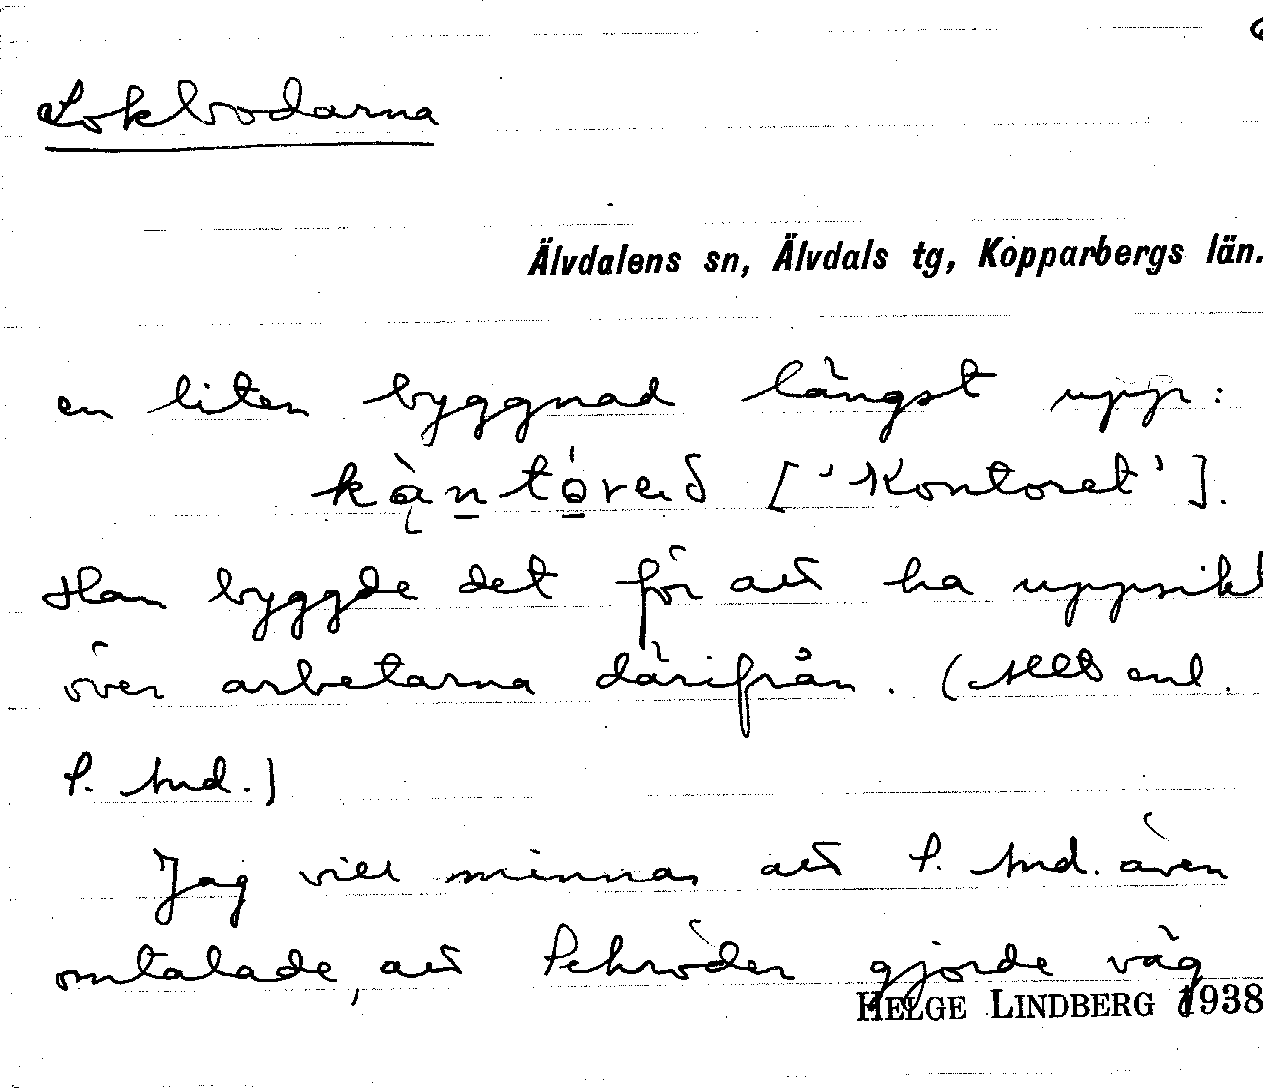 Lokbodarna
Älvdalens sn, Älvdals tg, Kopparbergs län.
en liten byggnad längst upp:
['Kontoret'].
Han byggde det för att ha uppsikt
över arbetarna därifrån. (Allt enl.
S. And.)
Jag vill minnas att S. And. även
omtalade, att Schröder gjorde väg
HELGE LINDBERG 1938